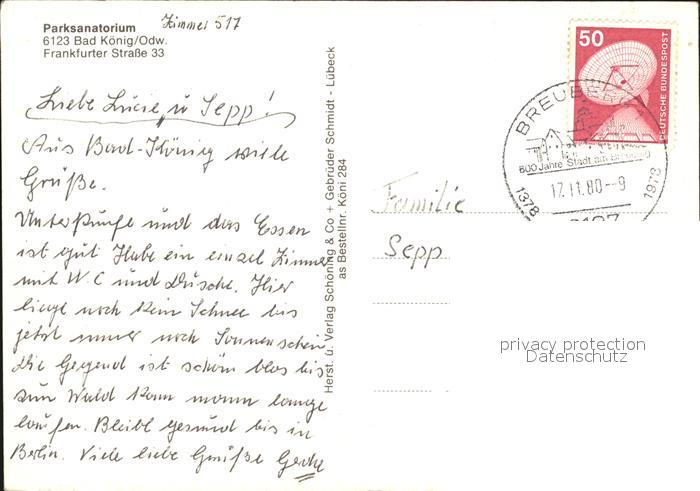 Parksanatorium
6123 Bad König/Odw.
Frankfurter Straße 33
Zimmer 517
Liebe Lucie u Sepp!
Aus Bad-König viele
Grüße.
Unterkunft und das Essen
ist gut Habe ein einzel Zimmer
mit W C und Dusche. Hier
liegt noch kein Schnee bis
jetzt immer noch Sonnenschein
Die Gegend ist schön blos bis
zum Wald kann mann lange
laufen. Bleibt gesund bis in
Berlin. Viele liebe Grüße
Herst. u. Verlag Schöning & Co + Gebrüder Schmidt - Lübeck
as Bestellnr. Köni 284
50
DEUTSCHE BUNDESPOST
BREUBERG
600 Jahre Stadt am Breuberg
1378
17.11.80--9
1978
6127
Familie
Sepp
privacy protection
Datenschutz